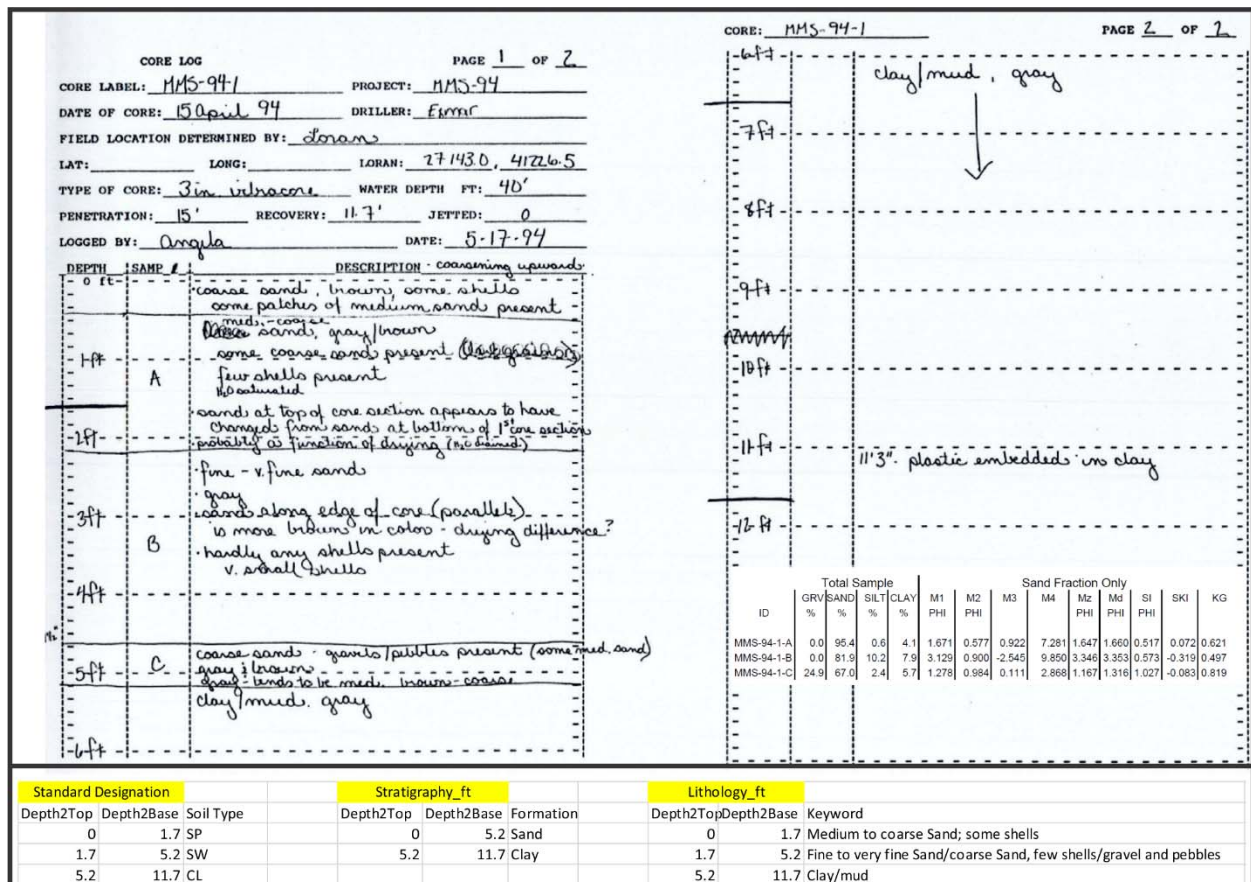 CORE LOG
PAGE 1 OF 2
CORE LABEL: MMS-94-1 PROJECT: MMS-94
DATE OF CORE: 15 April 94 DRILLER: Exmar
FIELD LOCATION DETERMINED BY: Loran
LAT: LONG: LORAN: 27143.0, 41226.5
TYPE OF CORE: 3in vibracore WATER DEPTH FT: 40'
PENETRATION: 15' RECOVERY: 11.7' JETTED: 0
LOGGED BY: Angela DATE: 5-17-94
DEPTH SAMP # DESCRIPTION - coarsening upward
0 ft
· coarse sand, brown, some shells
some patches of medium sand present
med.-coarse
sand, gray/brown
1ft some coarse sand present
A few shells present
H2O saturated
· sand at top of core section appears to have
2ft changed from sand at bottom of 1st core section
· probably as function of drying
· fine - v. fine sand
· gray
3ft · sand along edge of core (parallels)
is more brown in color - drying difference?
B · hardly any shells present
v. small shells
4ft
coarse sand - gravels/pebbles present (some med. sand)
5ft C gray & brown
gray-tends to be med. brown-coarse
clay/mud. gray
6ft
CORE: MMS-94-1 PAGE 2 OF 2
6ft
clay/mud, gray
7ft
8ft
9ft
10ft
11ft
11'3". plastic embedded in clay
12 ft
Total Sample Sand Fraction Only
GRV SAND SILT CLAY M1 M2 M3 M4 Mz Md SI SKI KG
ID % % % % PHI PHI PHI PHI PHI
MMS-94-1-A 0.0 95.4 0.6 4.1 1.671 0.577 0.922 7.281 1.647 1.660 0.517 0.072 0.621
MMS-94-1-B 0.0 81.9 10.2 7.9 3.129 0.900 -2.545 9.850 3.346 3.353 0.573 -0.319 0.497
MMS-94-1-C 24.9 67.0 2.4 5.7 1.278 0.984 0.111 2.868 1.167 1.316 1.027 -0.083 0.819
Standard Designation Stratigraphy_ft Lithology_ft
Depth2Top Depth2Base Soil Type Depth2Top Depth2Base Formation Depth2Top Depth2Base Keyword
0 1.7 SP 0 5.2 Sand 0 1.7 Medium to coarse Sand; some shells
1.7 5.2 SW 5.2 11.7 Clay 1.7 5.2 Fine to very fine Sand/coarse Sand, few shells/gravel and pebbles
5.2 11.7 CL 5.2 11.7 Clay/mud